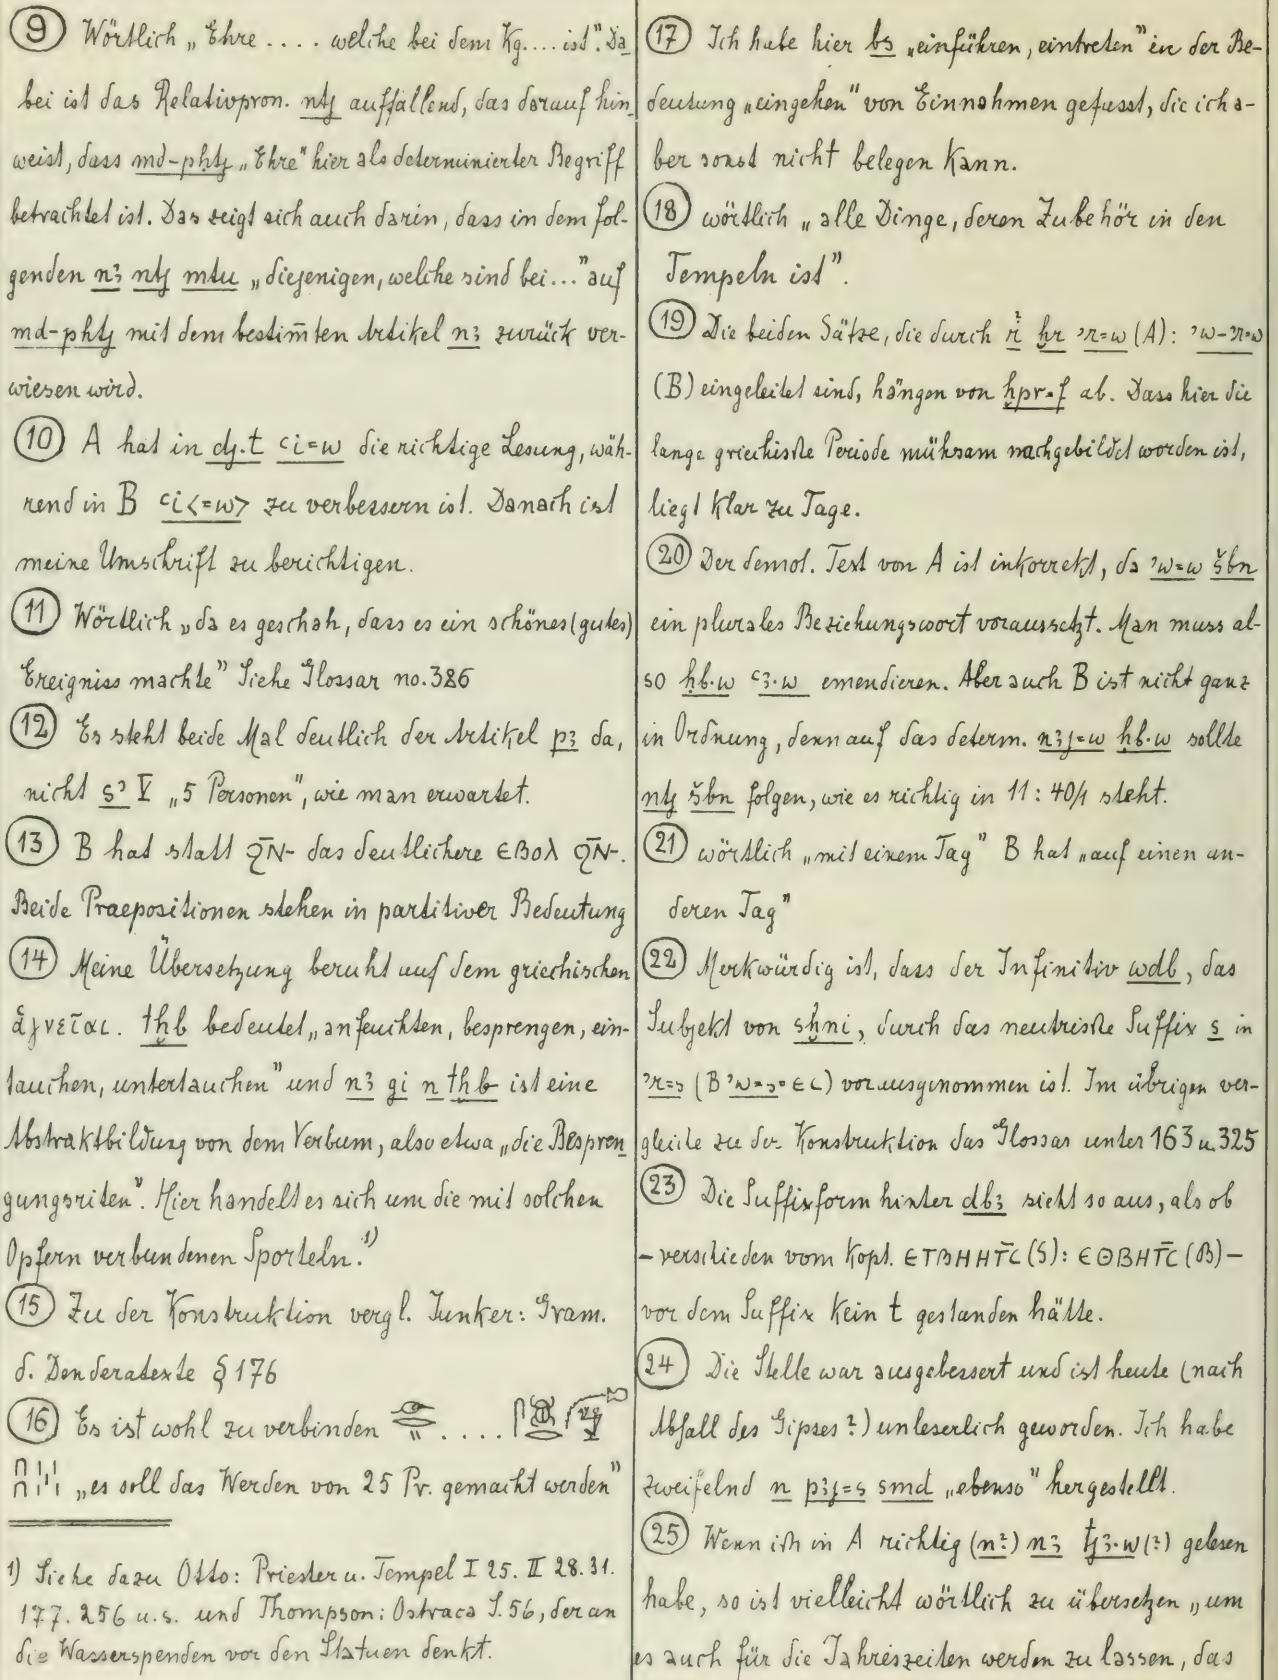 ⑨ Wörtlich „Ehre .... welche bei dem Kg.... ist". Da
bei ist das Relativpron. ntj auffallend, das darauf hin
weist, dass md-pḥtj „Ehre" hier als determinierter Begriff
betrachtet ist. Das zeigt sich auch darin, dass in dem fol-
genden nꜣ ntj mtu „diejenigen, welche sind bei..." auf
md-pḥtj mit dem bestim̄ten Artikel nꜣ zurück ver-
wiesen wird.
⑩ A hat in dj.t ꜥi=w die richtige Lesung, wäh-
rend in B ꜥi<=w> zu verbessern ist. Danach ist
meine Umschrift zu berichtigen.
⑪ Wörtlich „da es geschah, dass es ein schönes (gutes)
Ereigniss machte" Siehe Glossar no. 386
⑫ Es steht beide Mal deutlich der Artikel pꜣ da,
nicht sʾ V „5 Personen", wie man erwartet.
⑬ B hat statt ϩN̄- das deutlichere ⲈⲂⲞⲖ ϩN̄-.
Beide Praepositionen stehen in partitiver Bedeutung
⑭ Meine Übersetzung beruht auf dem griechischen
ἁγνεῖαι. tḫb bedeutet „anfeuchten, besprengen, ein-
tauchen, untertauchen" und nꜣ gi n tḫb ist eine
Abstraktbildung von dem Verbum, also etwa „die Bespren
gungsriten". Hier handelt es sich um die mit solchen
Opfern verbundenen Sporteln.¹)
⑮ Zu der Konstruktion vergl. Junker: Gram.
d. Denderatexte § 176
⑯ Es ist wohl zu verbinden ....
„es soll das Werden von 25 Pr. gemacht werden"
1) Siehe dazu Otto: Priester u. Tempel I 25. II 28. 31.
177. 256 u.s. und Thompson: Ostraca S. 56, der an
die Wasserspenden vor den Statuen denkt.
⑰ Ich habe hier bs „einführen, eintreten" in der Be-
deutung „eingehen" von Einnahmen gefasst, die ich a-
ber sonst nicht belegen kann.
⑱ wörtlich „alle Dinge, deren Zubehör in den
Tempeln ist".
⑲ Die beiden Sätze, die durch r̓ ḥr ʾr=w (A): ʾw-ʾr=w
(B) eingeleitet sind, hängen von ḫpr=f ab. Dass hier die
lange griechische Periode mühsam nachgebildet worden ist,
liegt klar zu Tage.
⑳ Der demot. Text von A ist inkorrekt, da ʾw=w šbn
ein plurales Beziehungswort voraussetzt. Man muss al-
so ḥb.w ꜥꜣ.w emendieren. Aber auch B ist nicht ganz
in Ordnung, denn auf das determ. nꜣj=w ḥb.w sollte
ntj šbn folgen, wie es richtig in 11:40/1 steht.
㉑ wörtlich „mit einem Tag" B hat „auf einen an-
deren Tag"
㉒ Merkwürdig ist, dass der Infinitiv wdb, das
Subjekt von sḥni, durch das neutrische Suffix s in
ʾr=s (B ʾw=s=ⲈⲤ) vorausgenommen ist. Im übrigen ver-
gleiche zu der Konstruktion das Glossar unter 163 u. 325
㉓ Die Suffixform hinter dbꜣ sieht so aus, als ob
– verschieden vom kopt. ⲈⲦⲂⲎⲎⲦ̄Ⲥ (S): ⲈⲐⲂⲎⲦ̄Ⲥ (B) –
vor dem Suffix kein t gestanden hätte.
㉔ Die Stelle war ausgebessert und ist heute (nach
Abfall des Gipses?) unleserlich geworden. Ich habe
zweifelnd n pꜣj=s smd „ebenso" hergestellt.
㉕ Wenn ich in A richtig (n?) nꜣ tjꜣ.w(?) gelesen
habe, so ist vielleicht wörtlich zu übersetzen „um
es auch für die Jahreszeiten werden zu lassen, das